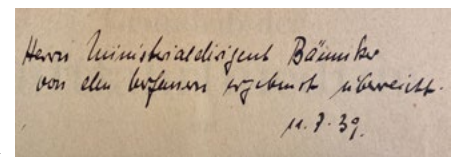 Herrn Ministerialdirigent Bäumker
von den Verfassern ergebenst überreicht.
11.7.39.